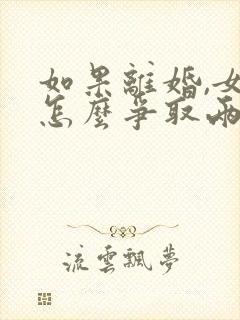 如果離婚,女
怎麼爭取兩
流雲飄夢